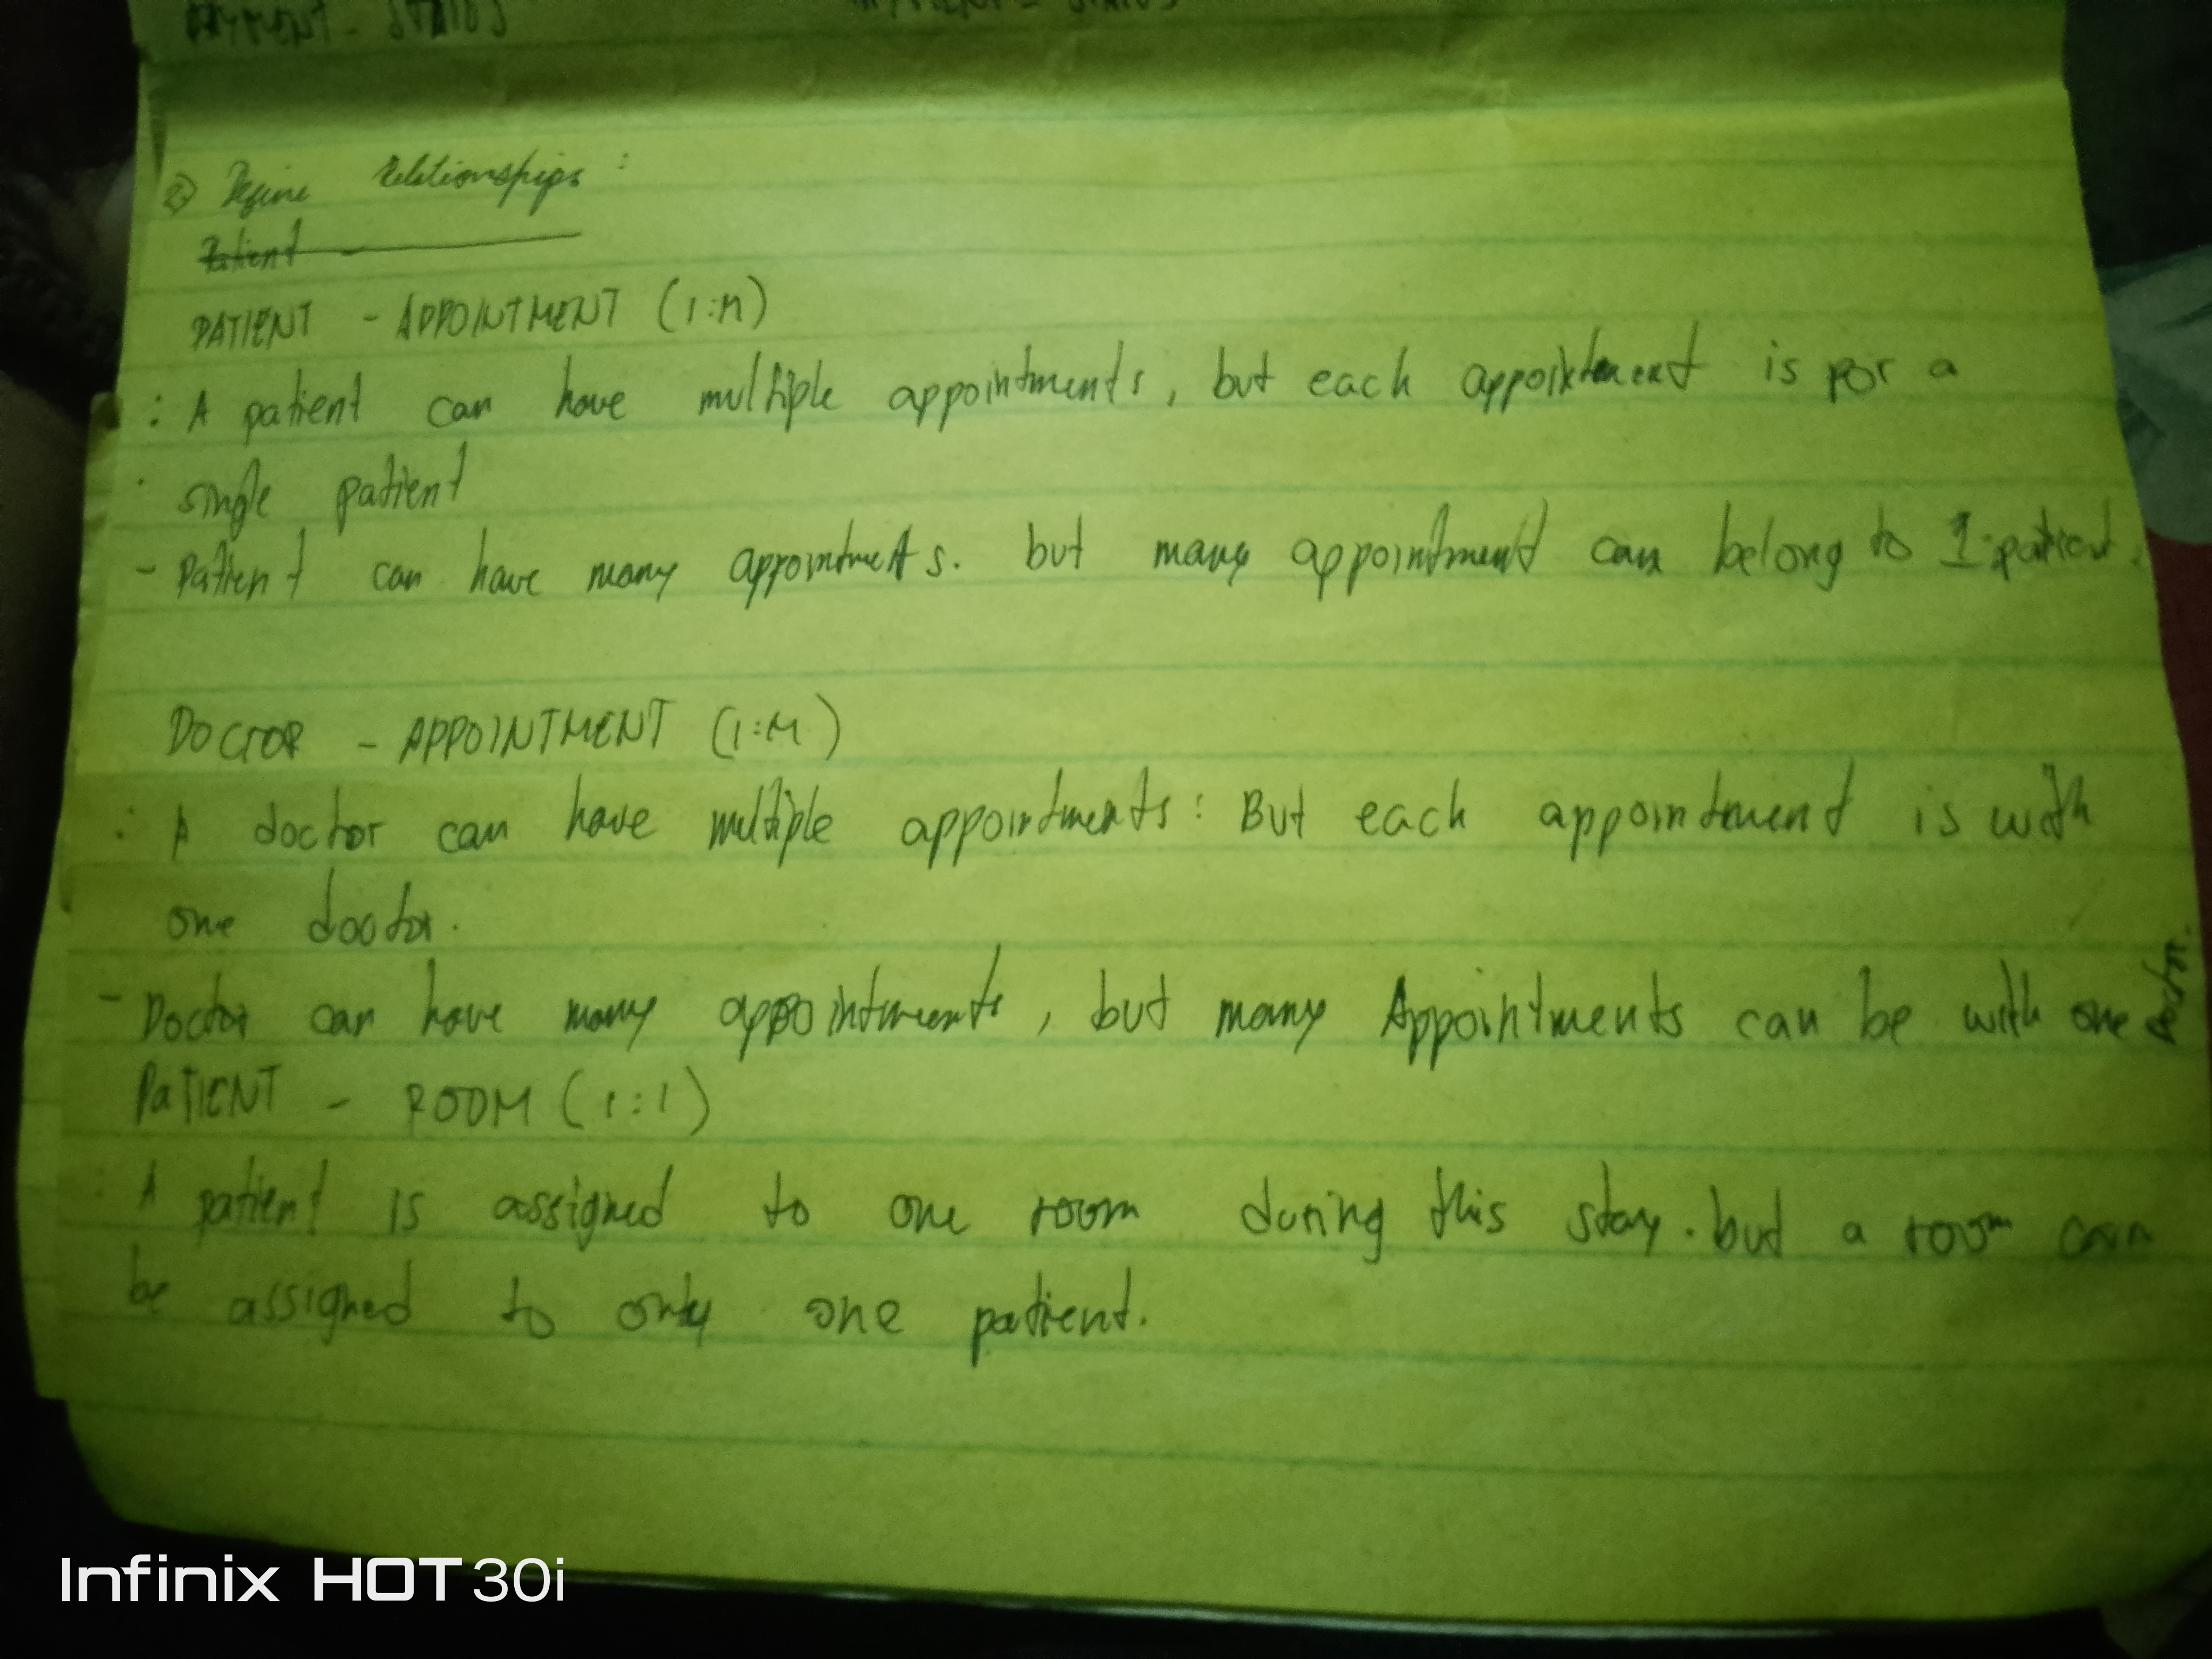 PAYMENT - STATUS
2) Define Relationships :
Patient -
PATIENT - APPOINTMENT (1:M)
: A patient can have multiple appointments, but each appointment is for a
single patient
- Patient can have many appointments. but many appointment can belong to 1 patient.
DOCTOR - APPOINTMENT (1:M)
: A doctor can have multiple appointments: But each appointment is with
one doctor.
- Doctor can have many appointments, but many Appointments can be with one Doctor.
PATIENT - ROOM (1:1)
: A patient is assigned to one room during this stay. but a room can
be assigned to only one patient.
Infinix HOT 30i